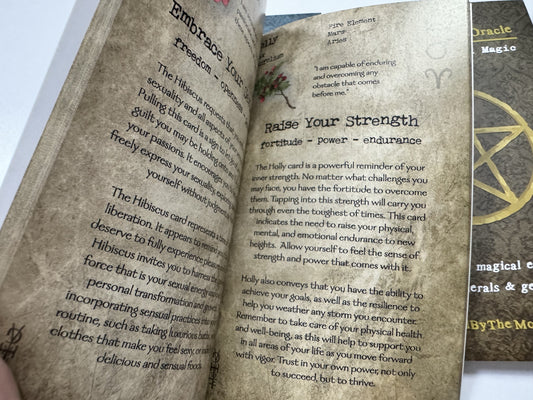 Embrace Your
freedom - openness
The Hibiscus requests that
sexuality and all aspects of your
Pulling this card is a sign to let go of
guilt you may be holding onto
your passions. It encourages you to
freely express your sexuality,
yourself without judgment
The Hibiscus card represents
liberation. It appears to remind
deserve to fully experience pleasure
Hibiscus invites you to harness
force that is your sexual energy
personal transformation and growth
incorporating sensual practices into
routine, such as taking luxurious baths,
clothes that make you feel sexy, or
delicious and sensual foods.
Holly
Fire Element
Mars
Aries
"I am capable of enduring
and overcoming any
obstacle that comes
before me."
Raise Your Strength
fortitude - power - endurance
The Holly card is a powerful reminder of your
inner strength. No matter what challenges you
may face, you have the fortitude to overcome
them. Tapping into this strength will carry you
through even the toughest of times. This card
indicates the need to raise your physical,
mental, and emotional endurance to new
heights. Allow yourself to feel the sense of
strength and power that comes with it.
Holly also conveys that you have the ability to
achieve your goals, as well as the resilience to
help you weather any storm you encounter.
Remember to take care of your physical health
and well-being, as this will help to support you
in all areas of your life as you move forward
with vigor. Trust in your own power, not only
to succeed, but to thrive.
Oracle
Magic
magical
ByTheMo